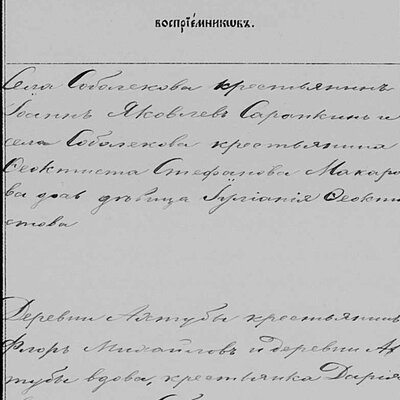 воспрїе́мникѡвъ.
Села Соболекова крестьянинъ
Іоаннъ Яковлевъ Сарапкинъ и
села Соболекова крестьянина
Ѳеоктиста Стефанова Макаро
ва дочь дѣвица Іуліанія Ѳеокти
стова
Деревни Ахтубы крестьянинъ
Флоръ Михайловъ и деревни Ах
тубы вдова, крестьянка Дарія